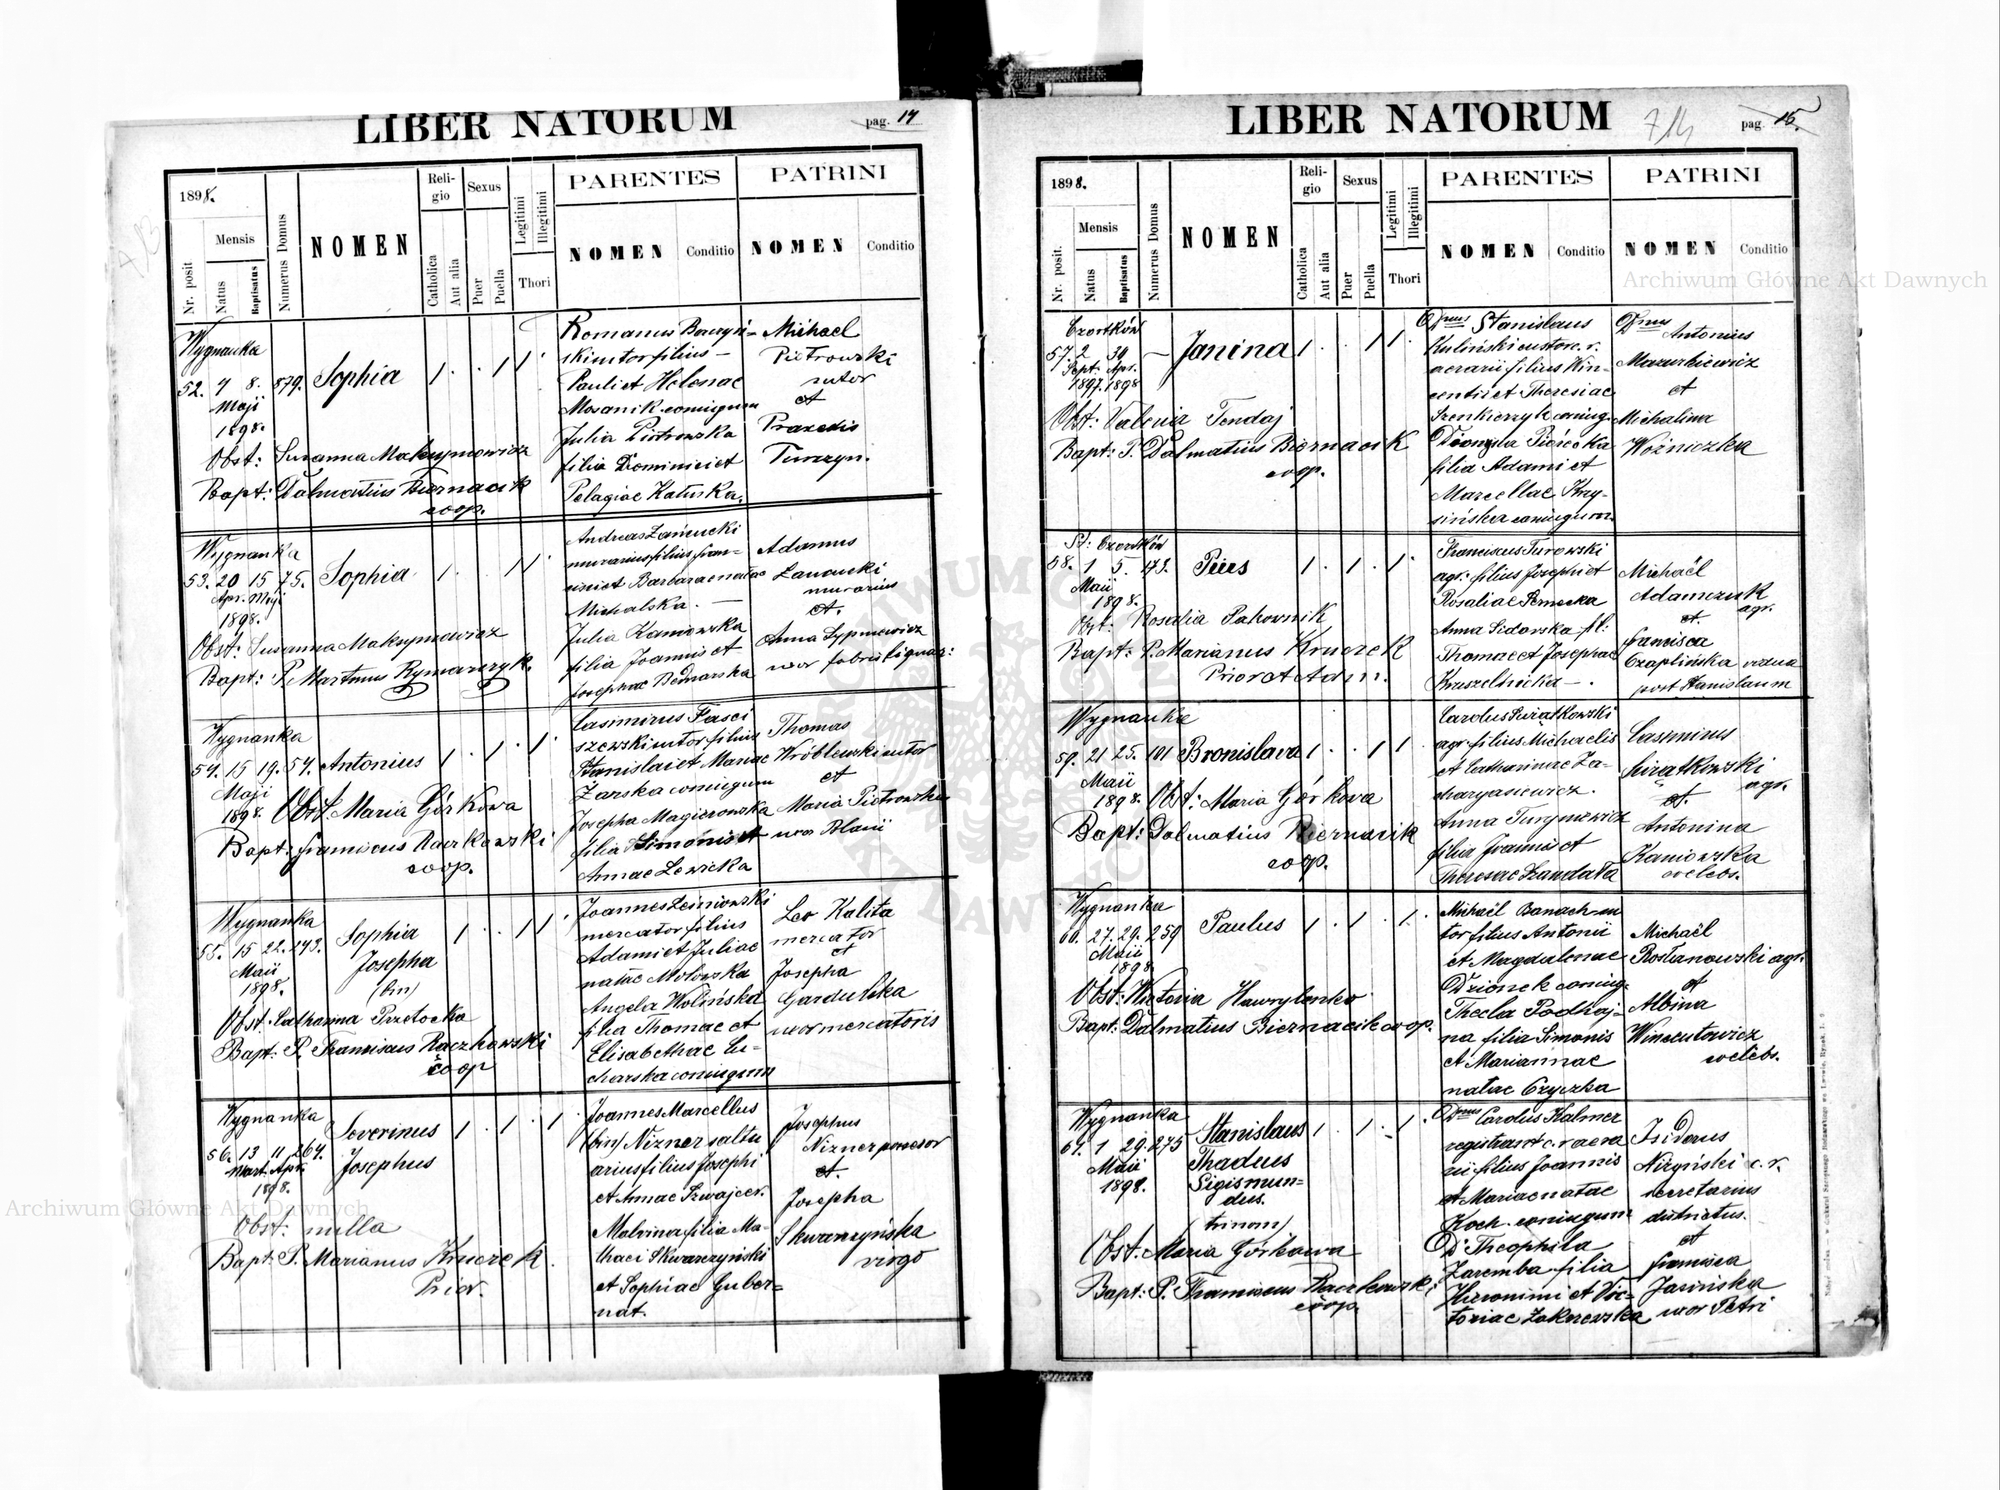 LIBER NATORUM
pag. 14
1898.
Mensis
Nr. posit
Natus
Baptisatus
Numerus Domus
NOMEN
Religio
Catholica
Aut alia
Sexus
Puer
Puella
Legitimi
Illegitimi
Thori
PARENTES
NOMEN
Conditio
PATRINI
NOMEN
Conditio
Wygnanka
52. 4 8. 879. Sophia 1 . . 1 1 .
Maji
1898.
Obst: Susanna Maksymowicz
Bapt: Dalmatius Biernacik
coop.
Romanus
filius —
Pauli et Helenae
coniugum
Julia Piotrowska
filia Dominici et
Pelagiae
Michael
Piotrowski
sutor
et
Praxedis
Turczyn.
Wygnanka
53. 20 15 75. Sophia 1 . . 1 1 .
Apr. Maji
1898.
Obst: Susanna Maksymowicz
Bapt: P. Martinus Rymarczyk.
Andreas Łańcucki
murarius filius Fran-
cisci et Barbarae natae
Michalska. —
Julia Kaniowska
filia Joannis et
Josephae Bednarska
Adamus
Łancucki
murarius
et.
Anna Sypniewicz
uxor fabri lignar:
Wygnanka
54. 15 19. 54. Antonius 1 . 1 . 1 .
Maji
1898. Obst. Maria Górkowa
Bapt: Franciscus Raczkowski
coop.
Casimirus
sutor filius
Stanislai et Mariae
Żarska coniugum
Josepha Magierowska
filia Simonis et
Annae Lewicka
Thomas
Wróblewski sutor
et
Maria Piotrowska
uxor
Wygnanka
55. 15 22. 243. Sophia 1 . . 1 1 .
Maii Josepha
1898. (bin)
Obst: Catharina Przetocka
Bapt: P. Franciscus Raczkowski
coop
Joannes Leśniowski
mercator filius
Adami et Juliae
natae
Angela Wolińska
filia Thomae et
Elisabethae Cu-
charska coniugum
Leo Kalita
mercator
et
Josepha
uxor mercatoris
Wygnanka
56. 13 11 264. Severinus 1 . 1 . 1
Mart. Apr. Josephus
1898.
Obst: nulla
Bapt: P. Marianus Kruczek.
Prior.
Joannes Marcellus
(bin) Nizner saltu
arius filius Josephi
et Annae Szwajcer.
Malvina filia Ma-
thaei Skwarczyński
et Sophiae Guber-
nat.
Josephus
Nizner possesor
et.
Josepha
Skwarczyńska
virgo
LIBER NATORUM
714
pag. 15.
1898.
Mensis
Nr. posit.
Natus
Baptisatus
Numerus Domus
NOMEN
Religio
Catholica
Aut alia
Sexus
Puer
Puella
Legitimi
Illegitimi
Thori
PARENTES
NOMEN
Conditio
PATRINI
NOMEN
Conditio
Czortków
57. 2 30 — Janina 1 . . 1 1 .
Sept. Apr.
1897. 1898
Obst: Valeria Tendaj
Bapt: P. Dalmatius Biernacik
coop.
Dnus Stanislaus
Kuliński custos c. r.
aerarii filius Vin-
centii et Theresiae
coniug.
Dionysia
filia Adami et
Marcellae Krzy-
sińska coniugum.
Dnus Antonius
Mazurkiewicz
et
Michalina
Woźniczka
St: Czortków
58. 1 5. 173. Pius 1 . 1 . 1 .
Maii
1898.
Obst: Rosalia Pakovnik
Bapt: P. Marianus Kruczek
Prior et Adm.
Franciscus Turowski
agr: filius Josephi et
Rosaliae
Anna Sidorska fil:
Thomae et Josephae
Kruszelnicka — .
Michaël
Adamczuk
agr.
et.
Francisca
Czaplińska vidua
post Stanislaum
Wygnanka
59. 21 25. 101 Bronislava 1 . . 1 1 .
Maii
1898. Obst: Maria Górkova
Bapt: Dalmatius Biernacik
coop.
Carolus Swiątkowski
agr. filius Michaelis
et Catharinae Za-
charyasiewicz.
Anna
filia Joannis et
Theresae Szandała
Casimirus
Swiątkowski
agr.
et.
Antonina
Kaniowska
coelebs.
Wygnanka
60. 27. 29. 259 Paulus 1 . 1 . 1 .
Maii
1898
Obst: Wiktoria Hawrylenko
Bapt: Dalmatius Biernacik coop.
Michaël Banach su
tor filius Antonii
et Magdalenae
Dzionek coniug.
Thecla Podhaj-
na filia Simonis
et Mariannae
natae Czyczka
Michaël
Rostanowski agr.
et
Albina
Wincutowicz
coelebs.
Wygnanka
61. 1 29. 275 Stanislaus 1 . 1 . 1 .
Maii Thadeus
1898. Sigismun-
dus.
(trinom)
Obst. Maria Górkowa
Bapt: P. Franciscus Raczkowski
coop.
Dnus Carolus Kalmer
registrant c. r. aera
rii filius Joannis
et Mariae natae
Koch. coniugum
Dna Theophila
Zaremba filia
Hieronimi et Vic-
toriae Zakrzewska
Isidorus
Niżyński c. r.
secretarius
districtus.
et
Francisca
Jasińska
uxor Petri
Archiwum Główne Akt Dawnych
Archiwum Główne Akt Dawnych
ARCHIWUM GŁÓWNE AKT DAWNYCH